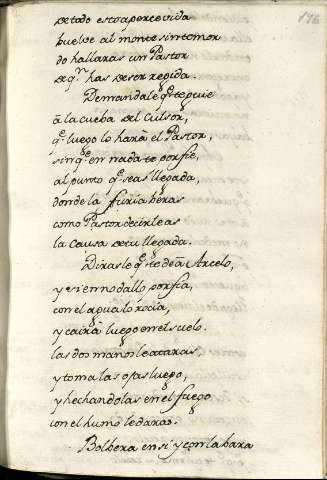 176
de todo esto apercevida
buelve al monte sin temor
do hallaras un Pastor
de qn has de ser regida.
Demandale qe te guie
â la cueba del Cursor,
qe luego lo harâ el Pastor,
sin qe en nada te porfie,
al punto qe seas llegada,
donde la furia beras
como Pastor decirleas
la Causa de tu llegada.
Dirasle qe te dê â Arcelo,
y si en no dallo porfia,
con el agua lo rocia,
y cairâ luego en el suelo.
las dos manos le ataras,
y toma las ojas luego,
y hechandolas en el fuego
con el humo le daras.
Bolbera en si y con la bara